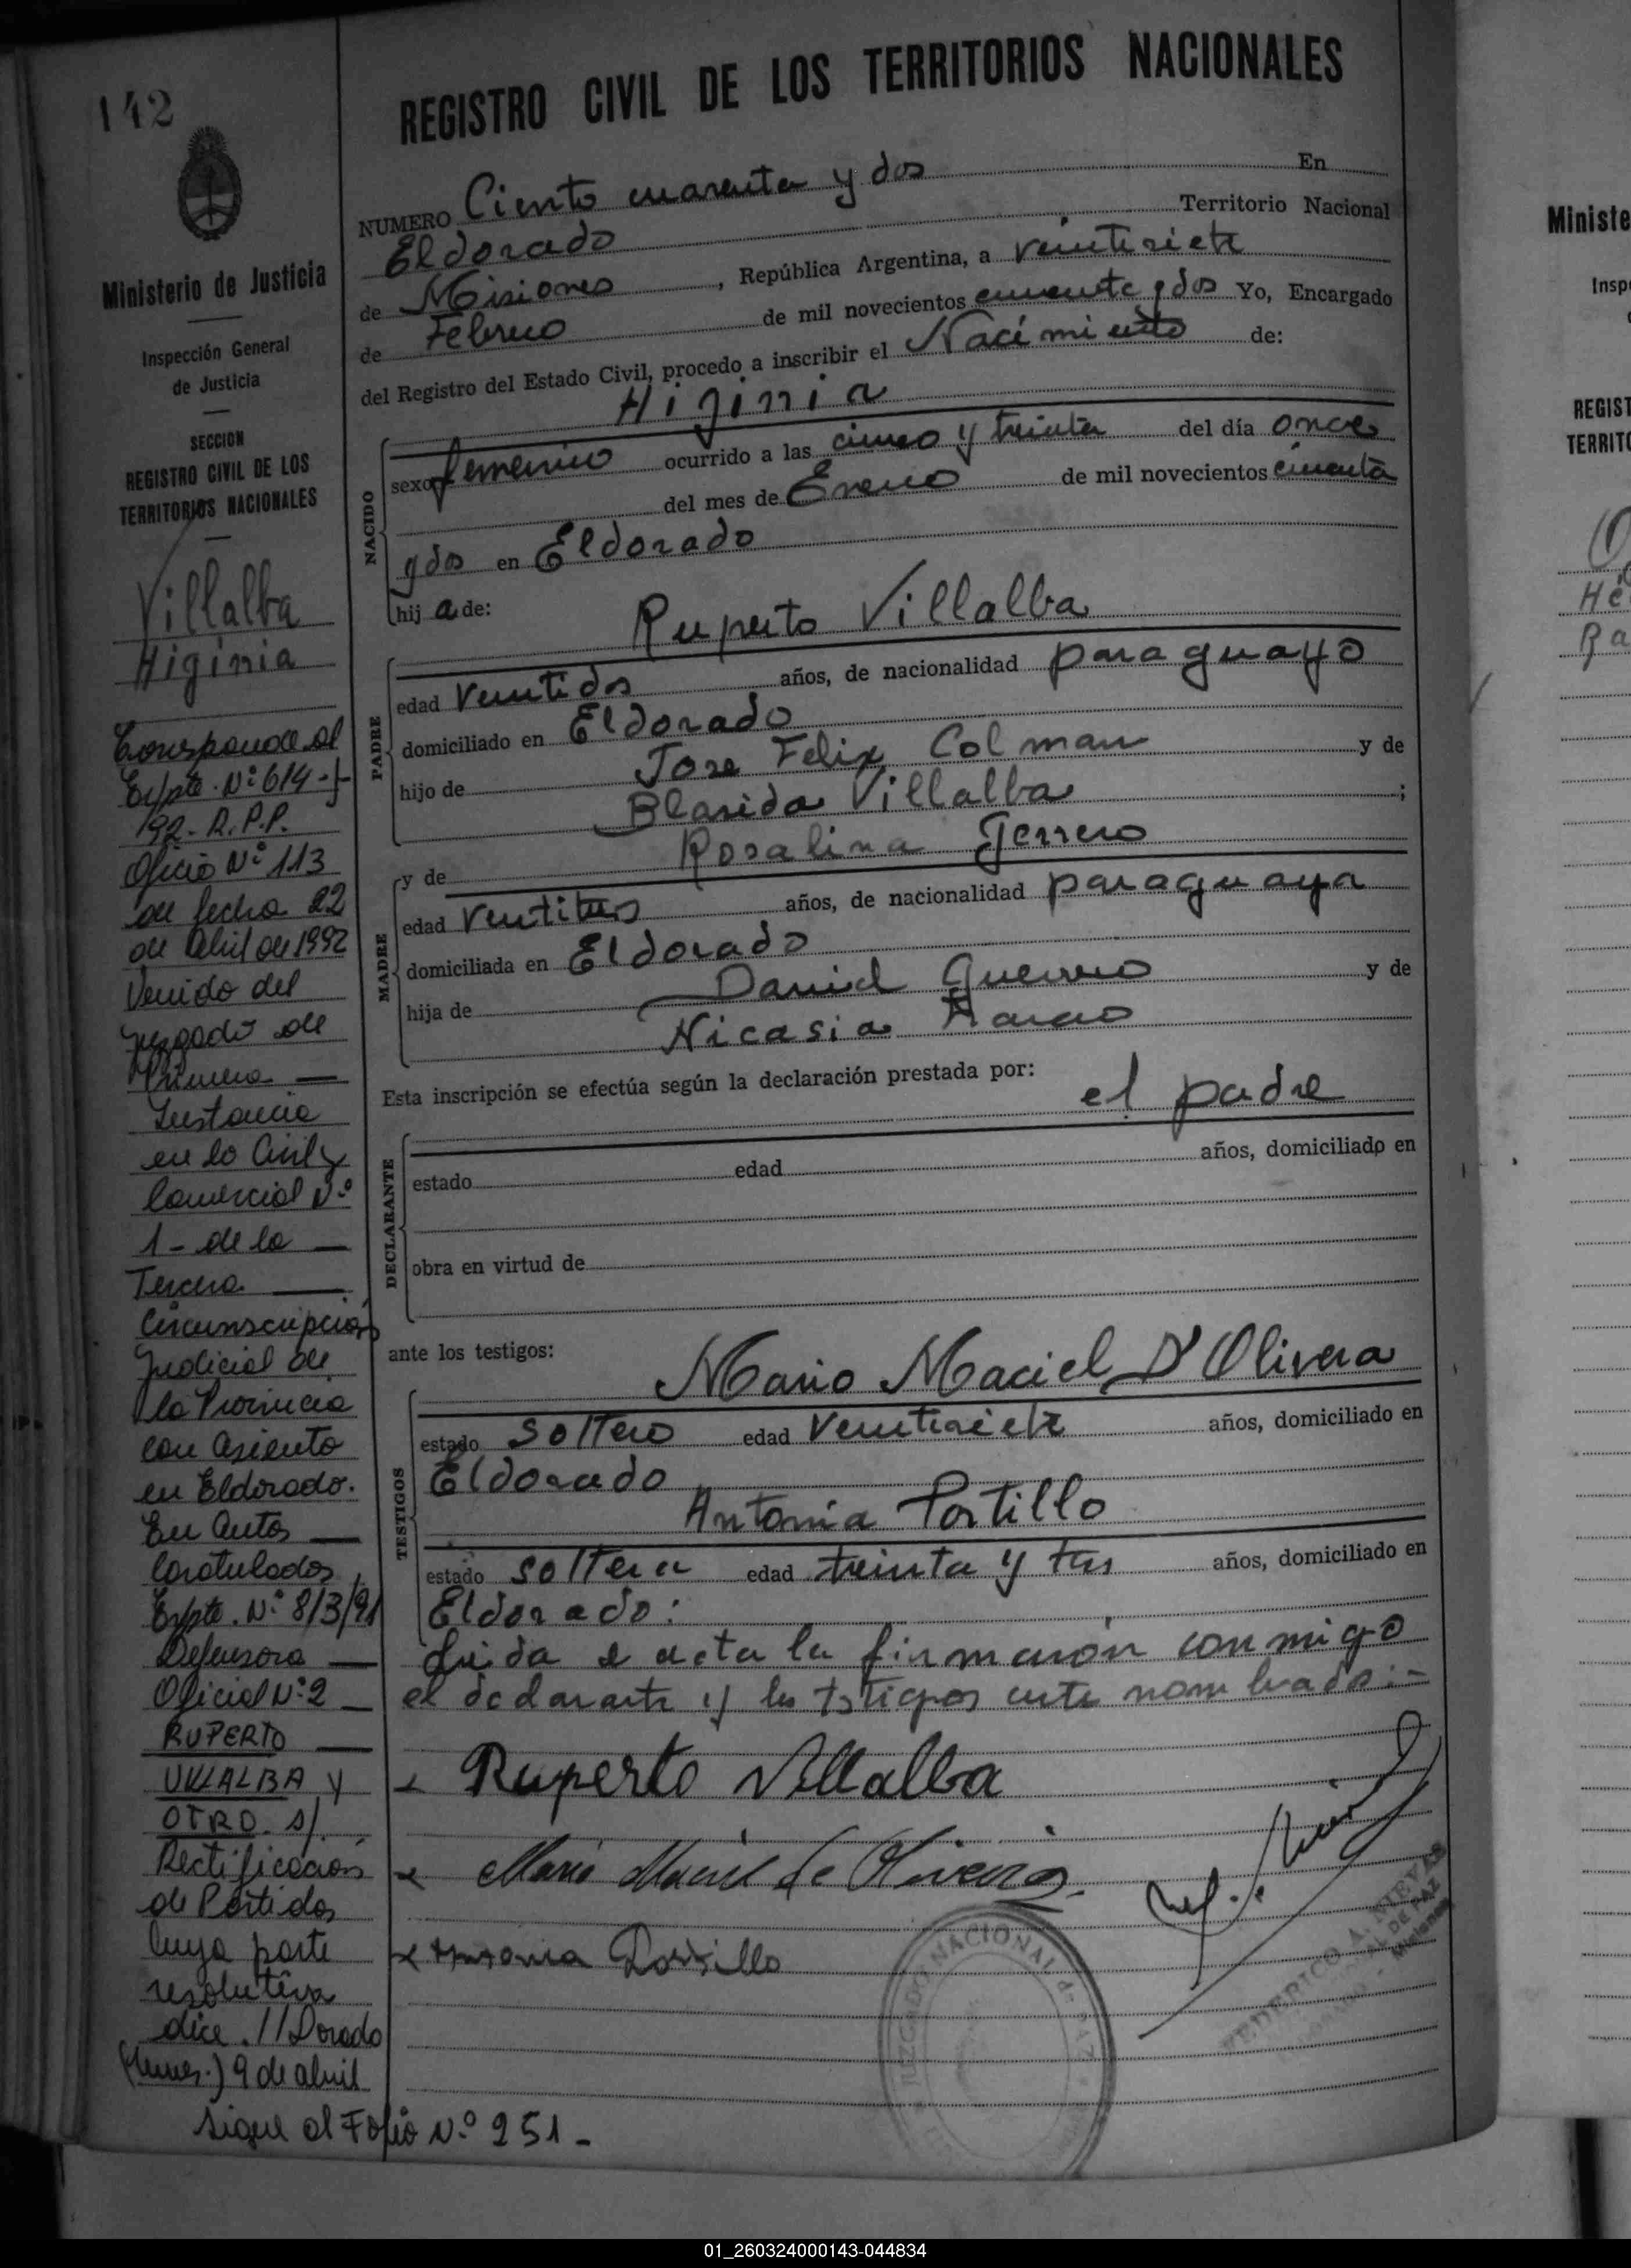 142
Ministerio de Justicia
Inspección General
de Justicia
SECCION
REGISTRO CIVIL DE LOS
TERRITORIOS NACIONALES
Villalba
Higinia
Corresponde al
Expte. Nº 614-f-
192-R.P.P.
Oficio Nº 113
de fecha 22
de abril de 1992
Venido del
Juzgado de
Primera —
Instancia
en lo Civil y
Comercial Nº
1 - de la —
Tercera —
Circunscripción
Judicial de
la Provincia
con asiento
en Eldorado.
En autos —
Caratulados
Expte. Nº 8/3/91
Defensora —
Oficial Nº 2 —
RUPERTO —
VILLALBA y
OTRO. s/.
Rectificación
de Partidas
cuya parte
resolutiva
dice. //Dorado
(Mnes.) 9 de abril
Sigue al Folio Nº 251 -
REGISTRO CIVIL DE LOS TERRITORIOS NACIONALES
NUMERO Ciento cuarenta y dos En
Eldorado Territorio Nacional
de Misiones, República Argentina, a veintisiete
de Febrero de mil novecientos cincuenta y dos Yo, Encargado
del Registro del Estado Civil, procedo a inscribir el Nacimiento de:
Higinia
NACIDO
sexo femenino ocurrido a las cinco y treinta del día once
del mes de Enero de mil novecientos cincuenta
y dos en Eldorado
hij a de:
Ruperto Villalba
PADRE
edad ventidos años, de nacionalidad paraguayo
domiciliado en Eldorado
hijo de Jose Felix Colman y de
Blasida Villalba ;
y de Rosalina Gerrero
MADRE
edad ventitres años, de nacionalidad paraguaya
domiciliada en Eldorado
hija de Daniel Guerrero y de
Nicasia
Esta inscripción se efectúa según la declaración prestada por:
el padre
DECLARANTE
estado edad años, domiciliado en
obra en virtud de
ante los testigos:
Mario Maciel D'Olivera
TESTIGOS
estado soltero edad ventisiete años, domiciliado en
Eldorado
Antonia Portillo
estado soltera edad treinta y tres años, domiciliado en
Eldorado:
Leida el acta la firmaron conmigo
el declarante y los testigos ante nombrados:-
Ruperto Villalba
Mario Maciel de Olivera
Antonia Portillo
JUZGADO NACIONAL de PAZ
FEDERICO A. NIEVAS
DE PAZ
Misiones
Ministe
Insp
REGIST
TERRITO
Hé
Ra
01_260324000143-044834